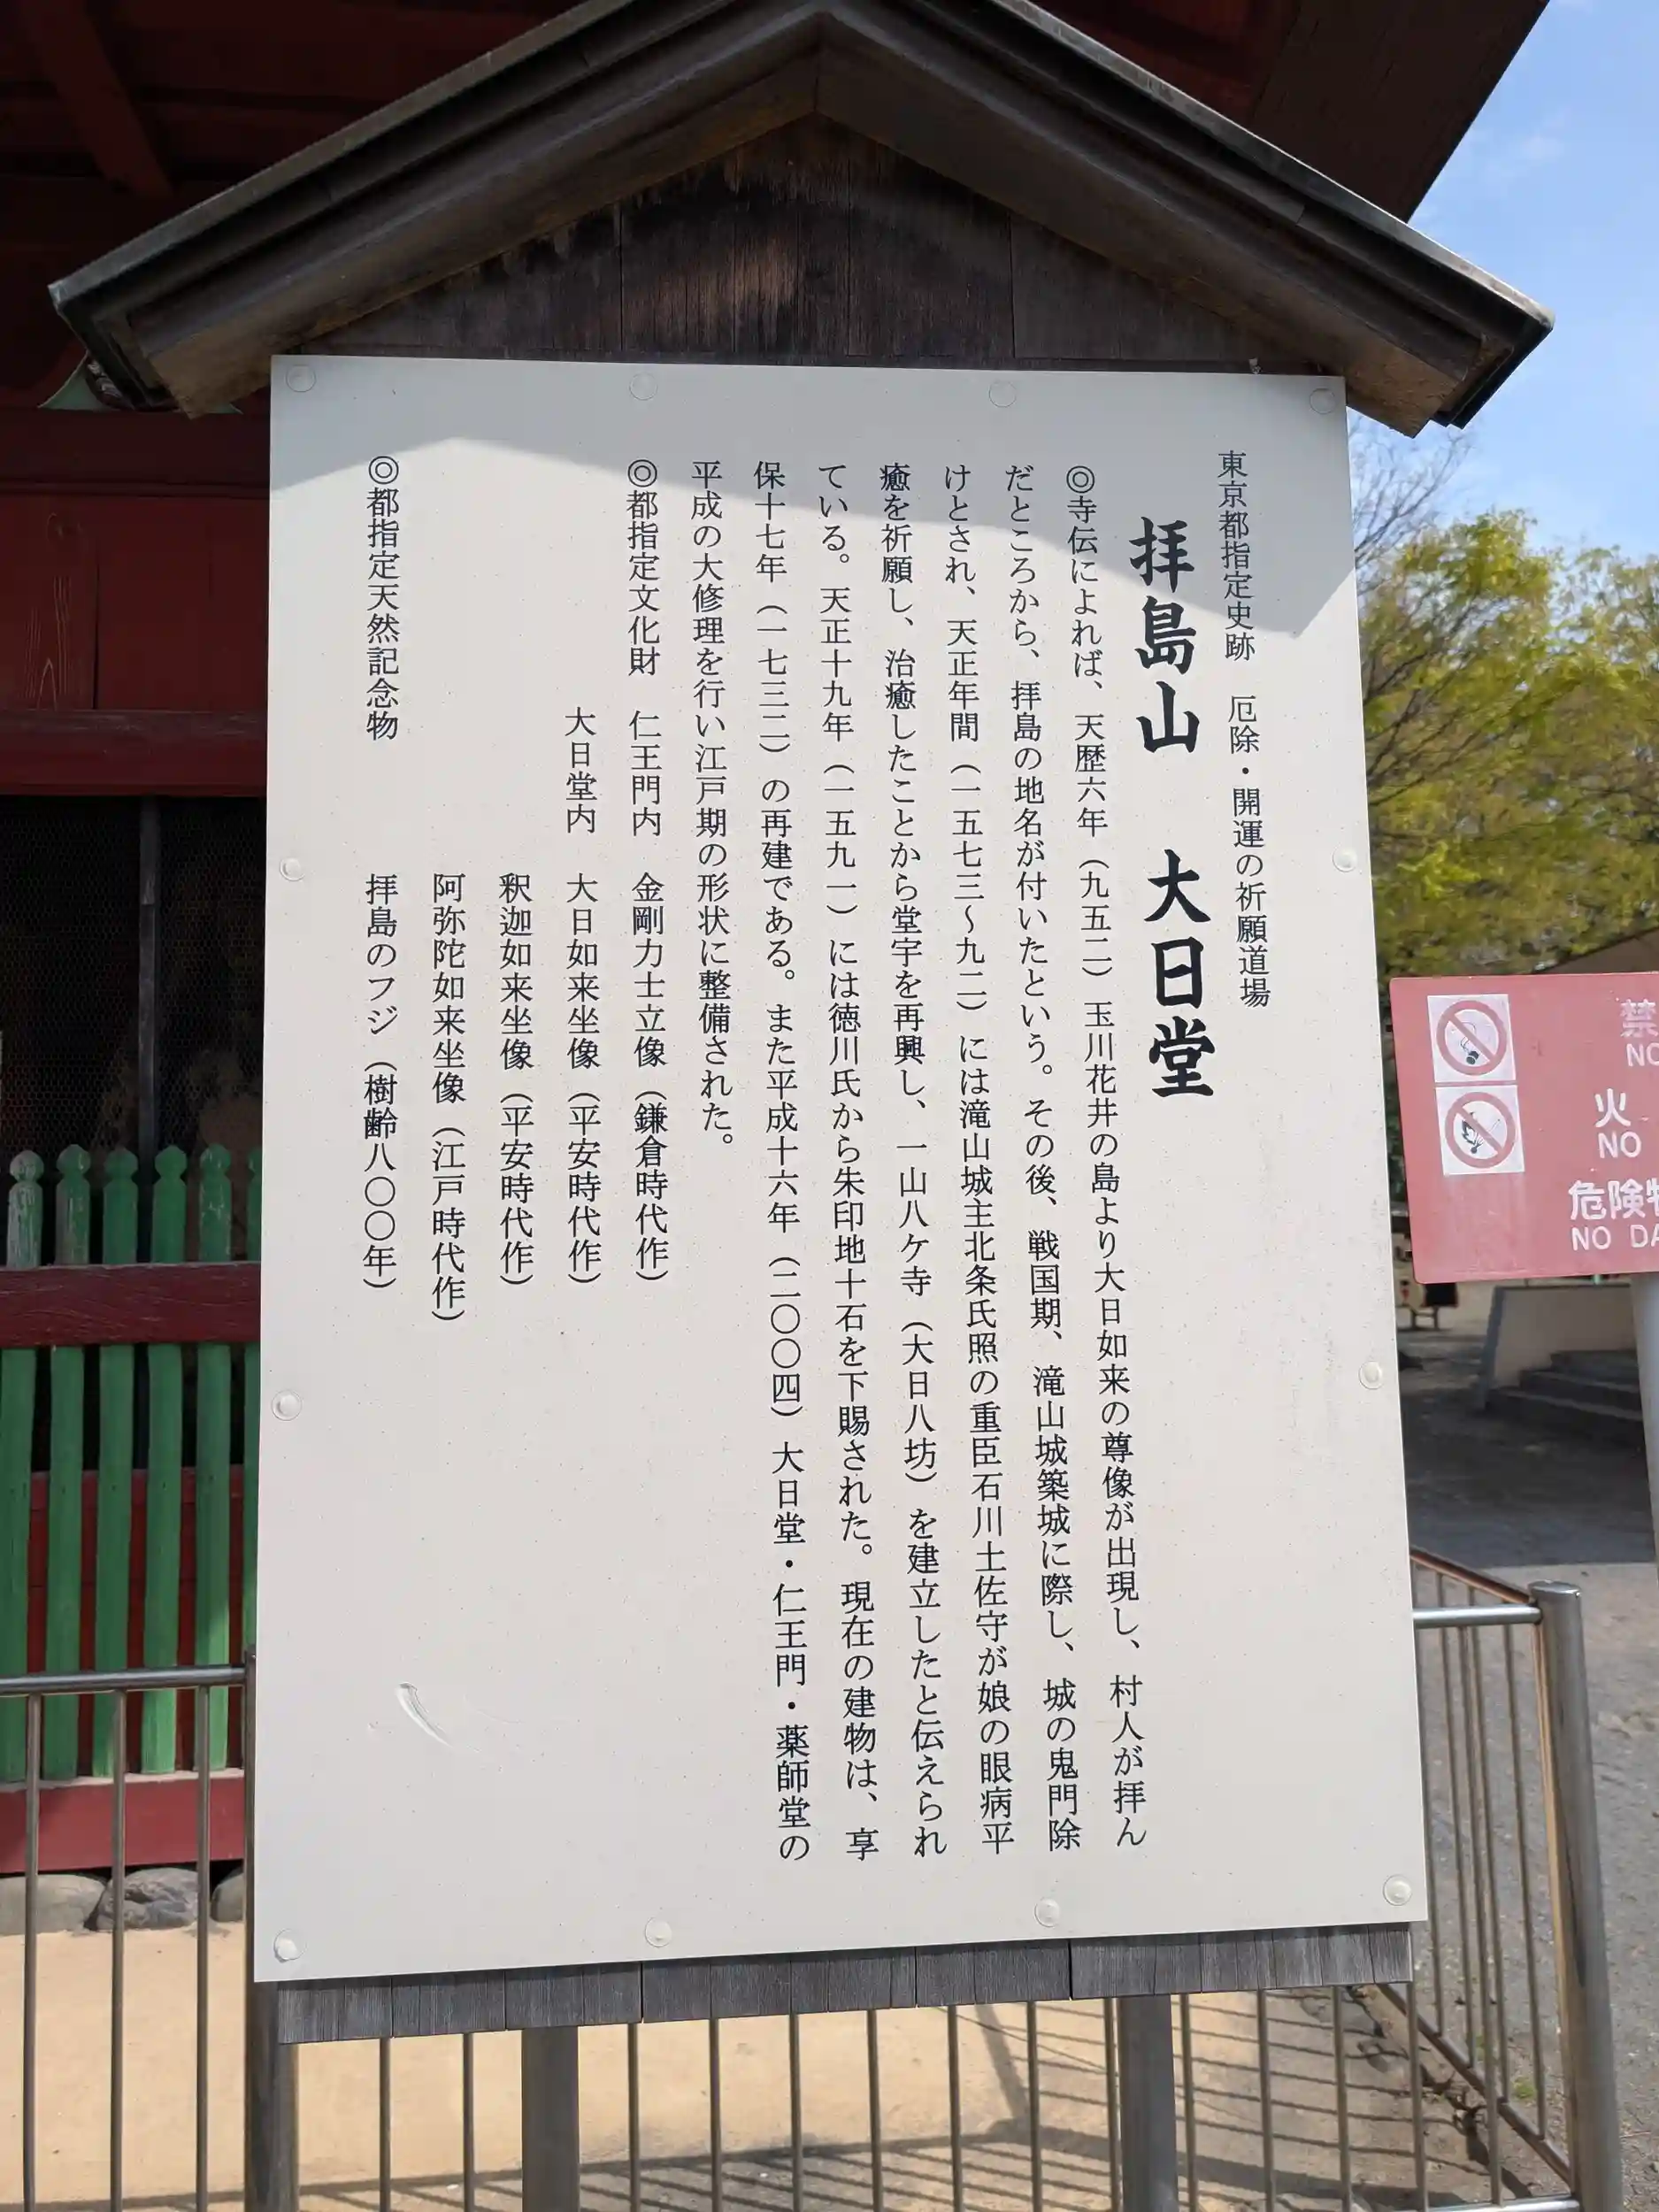 東京都指定史跡　厄除・開運の祈願道場
拝島山　大日堂
◎寺伝によれば、天歴六年（九五二）玉川花井の島より大日如来の尊像が出現し、村人が拝ん
だところから、拝島の地名が付いたという。その後、戦国期、滝山城築城に際し、城の鬼門除
けとされ、天正年間（一五七三〜九二）には滝山城主北条氏照の重臣石川土佐守が娘の眼病平
癒を祈願し、治癒したことから堂宇を再興し、一山八ケ寺（大日八坊）を建立したと伝えられ
ている。天正十九年（一五九一）には徳川氏から朱印地十石を下賜された。現在の建物は、享
保十七年（一七三二）の再建である。また平成十六年（二〇〇四）大日堂・仁王門・薬師堂の
平成の大修理を行い江戸期の形状に整備された。
◎都指定文化財　仁王門内　金剛力士立像（鎌倉時代作）
大日堂内　大日如来坐像（平安時代作）
釈迦如来坐像（平安時代作）
阿弥陀如来坐像（江戸時代作）
◎都指定天然記念物　拝島のフジ（樹齢八〇〇年）
禁
NO
火
NO
危険物
NO DA